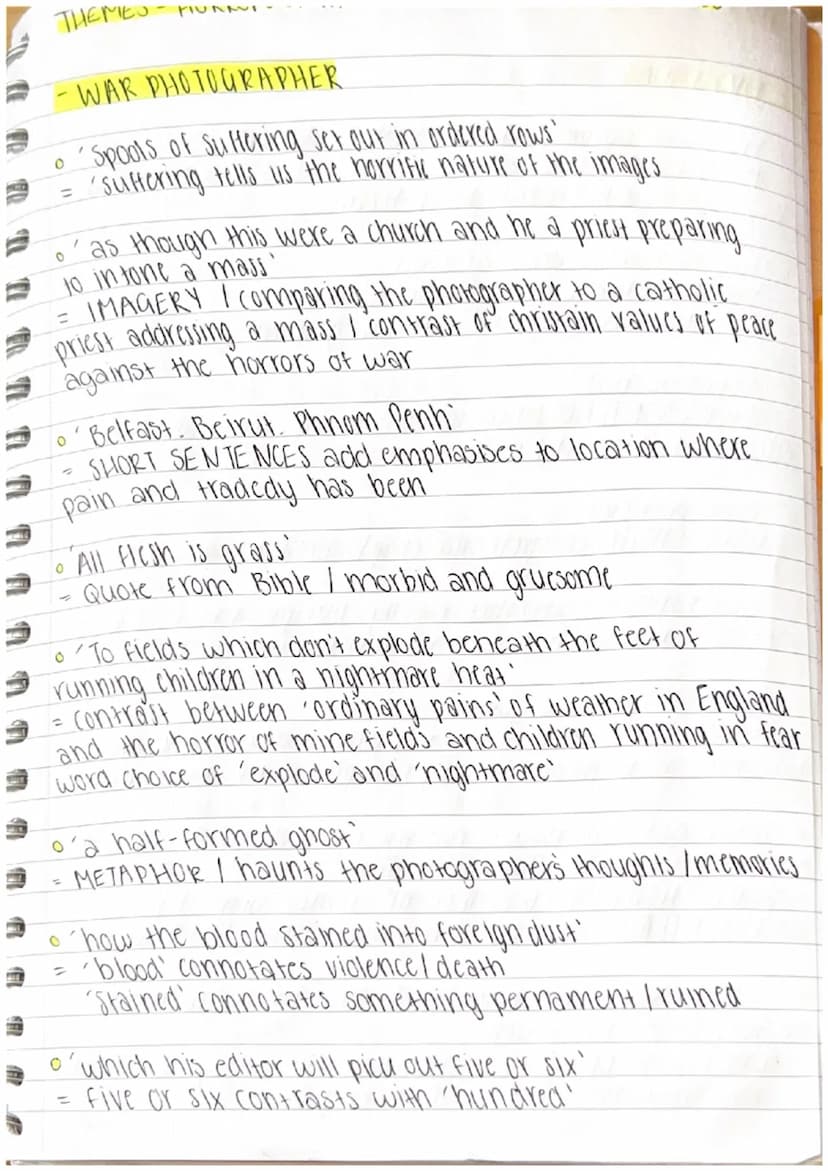 THEMES - HORRORS OF
- WAR PHOTOGRAPHER
'Spools of suffering set out in ordered rows'
= 'suffering tells us the horrific nature of the images
'as though this were a church and he a priest preparing
to intone a mass'
= IMAGERY / comparing the photographer to a catholic
priest addressing a mass / contrast of christain values of peace
against the horrors of war
'Belfast. Beirut. Phnom Penh'
= SHORT SENTENCES add emphasises to location where
pain and tradedy has been
'All flesh is grass'
= Quote from Bible / morbid and gruesome
'To fields which don't explode beneath the feet of
running children in a nightmare heat'
= contrast between 'ordinary pains' of weather in England
and the horror of mine fields and children running in fear
word choice of 'explode' and 'nightmare'
'a half-formed ghost'
= METAPHOR / haunts the photographers thoughts / memories
'how the blood stained into foreign dust'
= 'blood' connotates violence / death
'stained' connotates something pernament / ruined
'which his editor will pick out five or six'
= five or six contrasts with 'hundred'